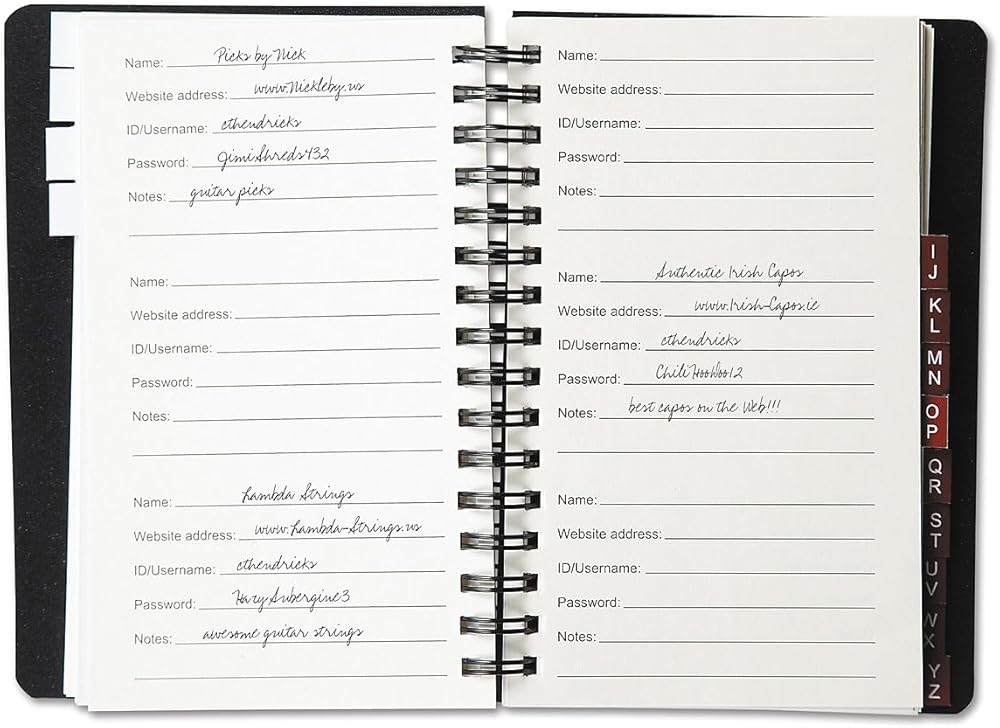 Name: Picks by Nick
Website address: www.Nickleby.us
ID/Username: cthendricks
Password: JimiShreds432
Notes: guitar picks
Name:
Website address:
ID/Username:
Password:
Notes:
Name: Lambda Strings
Website address: www.Lambda-Strings.us
ID/Username: cthendricks
Password:
Notes: awesome guitar strings
Name:
Website address:
ID/Username:
Password:
Notes:
Name: Authentic Irish Capos
Website address: www.Irish-Capos.ie
ID/Username: cthendricks
Password: ChiliHooWoo12
Notes: best capos on the Web!!!
Name:
Website address:
ID/Username:
Password:
Notes:
I
J
K
L
M
N
O
P
Q
R
S
T
U
V
W
X
Y
Z